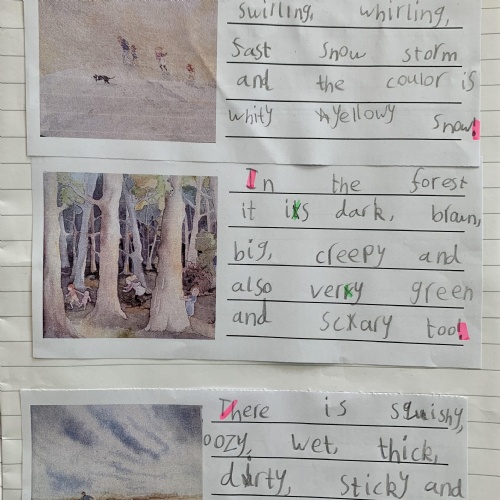 swirling, whirling,
fast snow storm
and the coulor is
whity yellowy snow!
In the forest
it is dark, brain,
big, creepy and
also very green
and scary too!
There is squishy,
oozy, wet, thick,
dirty, sticky and